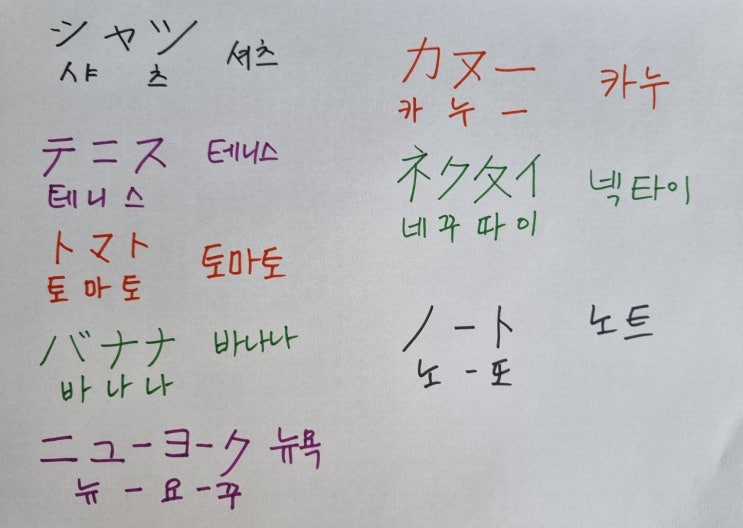 シャツ 셔츠
샤 츠
テニス 테니스
테니스
トマト 토마토
토마토
バナナ 바나나
바나나
ニューヨーク 뉴욕
뉴-요-꾸
カヌー 카누
카누ー
ネクタイ 넥타이
네꾸따이
ノート 노트
노-또